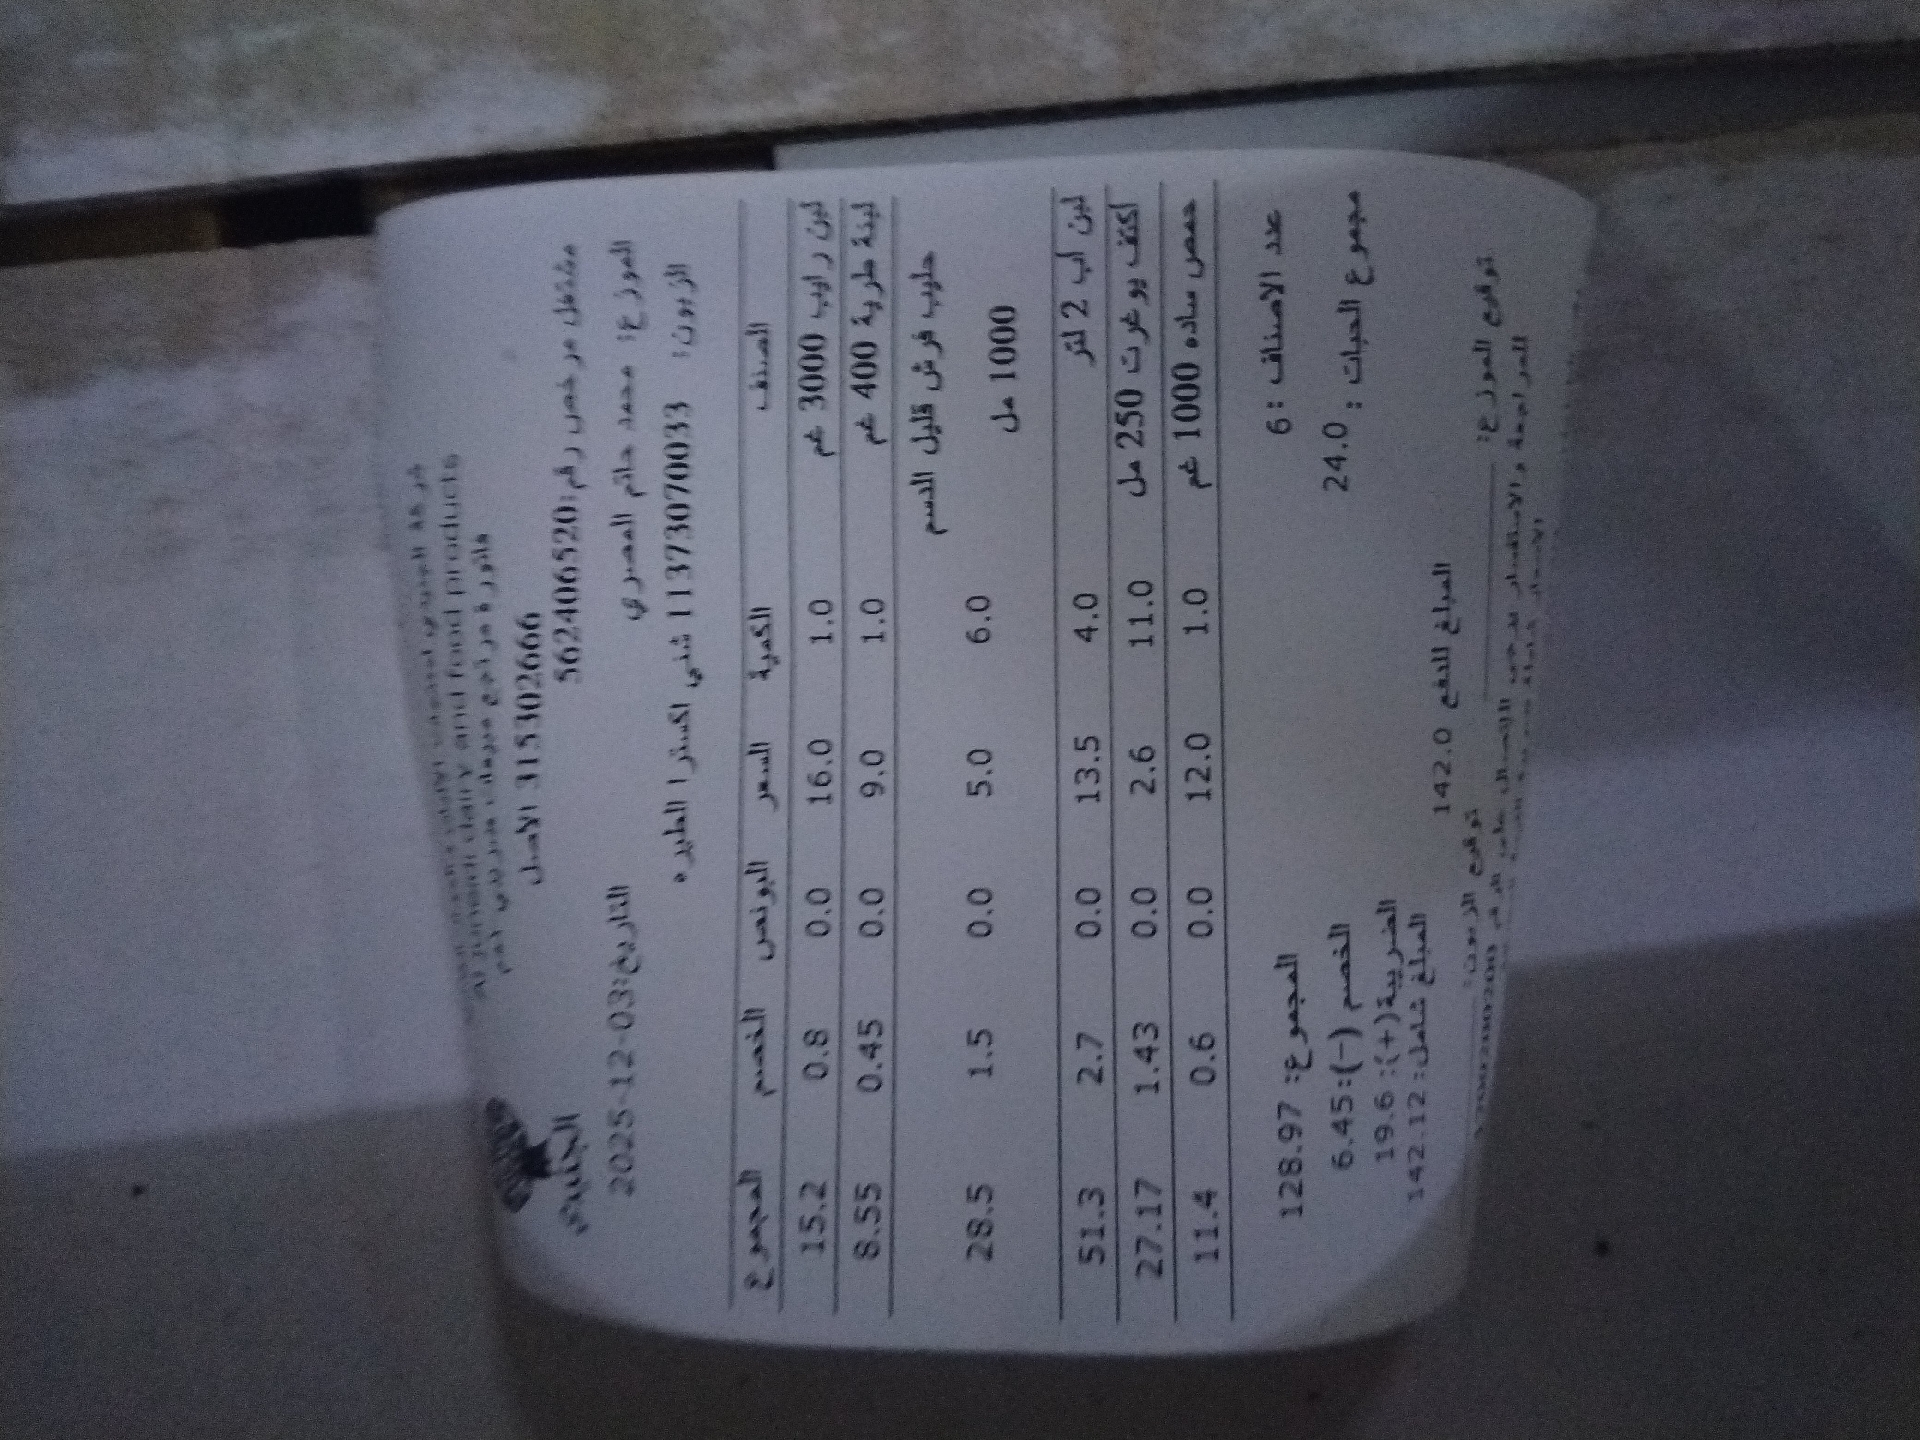 شركة الجنيدي
Al Juneidi dairy and food products
فاتورة مراجع مبيعات ضريبي رقم
3153026666 الاصل
الجنيدي
مشتغل مرخص رقم:562406520
الموزع: محمد حاتم المصري
التاريخ:2025-12-03
الزبون: 1137307033 شني اكسترا الطيره
الصنف الكمية السعر البونص الخصم المجموع
لبن رايب 3000 غم 1.0 16.0 0.0 0.8 15.2
لبنة طرية 400 غم 1.0 9.0 0.0 0.45 8.55
حليب فرش قليل الدسم
1000 مل 6.0 5.0 0.0 1.5 28.5
لبن اب 2 لتر 4.0 13.5 0.0 2.7 51.3
اكتف يوغرت 250 مل 11.0 2.6 0.0 1.43 27.17
حمص ساده 1000 غم 1.0 12.0 0.0 0.6 11.4
عدد الاصناف : 6 المجموع: 128.97
مجموع الحبات : 24.0 الخصم (-):6.45
الضريبة(+): 19.6
المبلغ للدفع 142.0 المبلغ شامل: 142.12
توقيع الموزع: توقيع الزبون:
للمراجعة والاستفسار يرجى الاتصال على الرقم